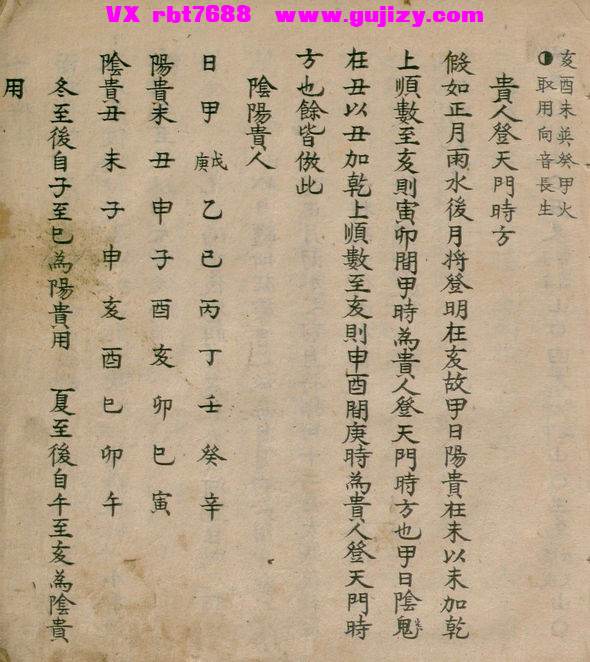 VX rbt7688 www.gujizy.com
亥酉未英癸甲火
◑取用向音長生
貴人登天門時方
假如正月雨水後月將登明在亥故甲日陽貴在未以未加乾
上順數至亥則寅卯間甲時為貴人登天門時方也甲日陰鬼
在丑以丑加乾上順數至亥則申酉間庚時為貴人登天門時
方也餘皆倣此
陰陽貴人
日甲戊庚乙己丙丁壬癸辛
陽貴未丑申子酉亥卯巳寅
陰貴丑未子申亥酉巳卯午
冬至後自子至巳為陽貴用 夏至後自午至亥為陰貴
用